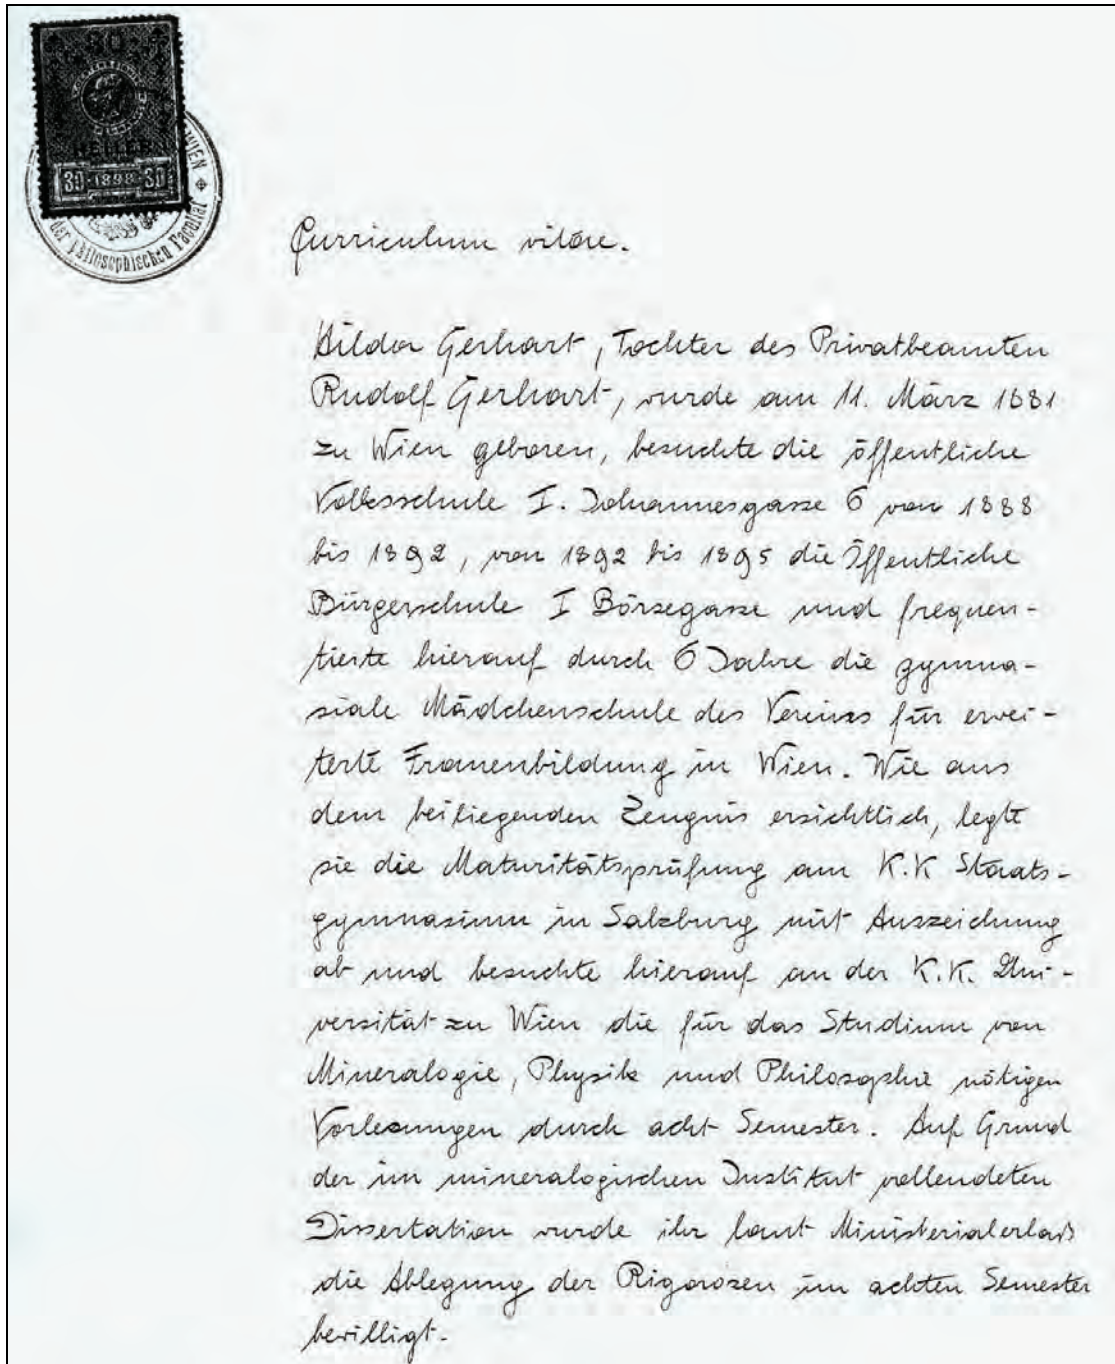 30
HELLER
30 1898 30
WIEN
der philosophischen Facultät
Curriculum vitae.
Hilda Gerhart, Tochter des Privatbeamten
Rudolf Gerhart, wurde am 11. März 1881
zu Wien geboren, besuchte die öffentliche
Volksschule I. Johannesgasse 6 von 1888
bis 1892, von 1892 bis 1895 die Öffentliche
Bürgerschule I Börsegasse und frequen-
tierte hierauf durch 6 Jahre die gymna-
siale Mädchenschule des Vereins für erwei-
terte Frauenbildung in Wien. Wie aus
dem beiliegenden Zeugnis ersichtlich, legte
sie die Maturitätsprüfung am K.K Staats-
gymnasium in Salzburg mit Auszeichung
ab und besuchte hierauf an der K.K. Uni-
versität zu Wien die für das Studium von
Mineralogie, Physik und Philosophie nötigen
Vorlesungen durch acht Semester. Auf Grund
der im mineralogischen Institut vollendeten
Dissertation wurde ihr laut Ministerialerlaß
die Ablegung der Rigorosen im achten Semester
bewilligt.